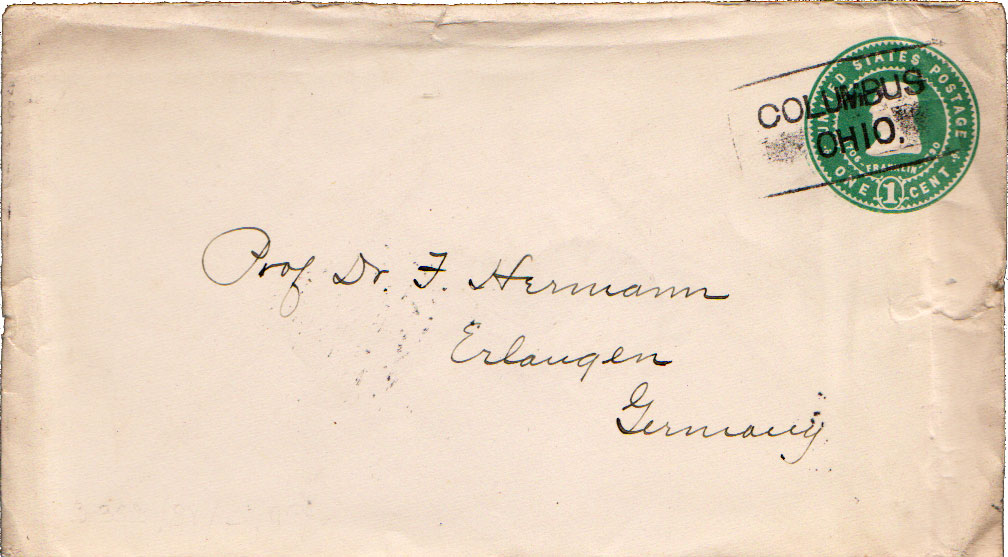 UNITED STATES POSTAGE
COLUMBUS
OHIO.
1706 - FRANKLIN - 1790
ONE 1 CENT
Prof Dr. F. Hermann
Erlangen
Germany